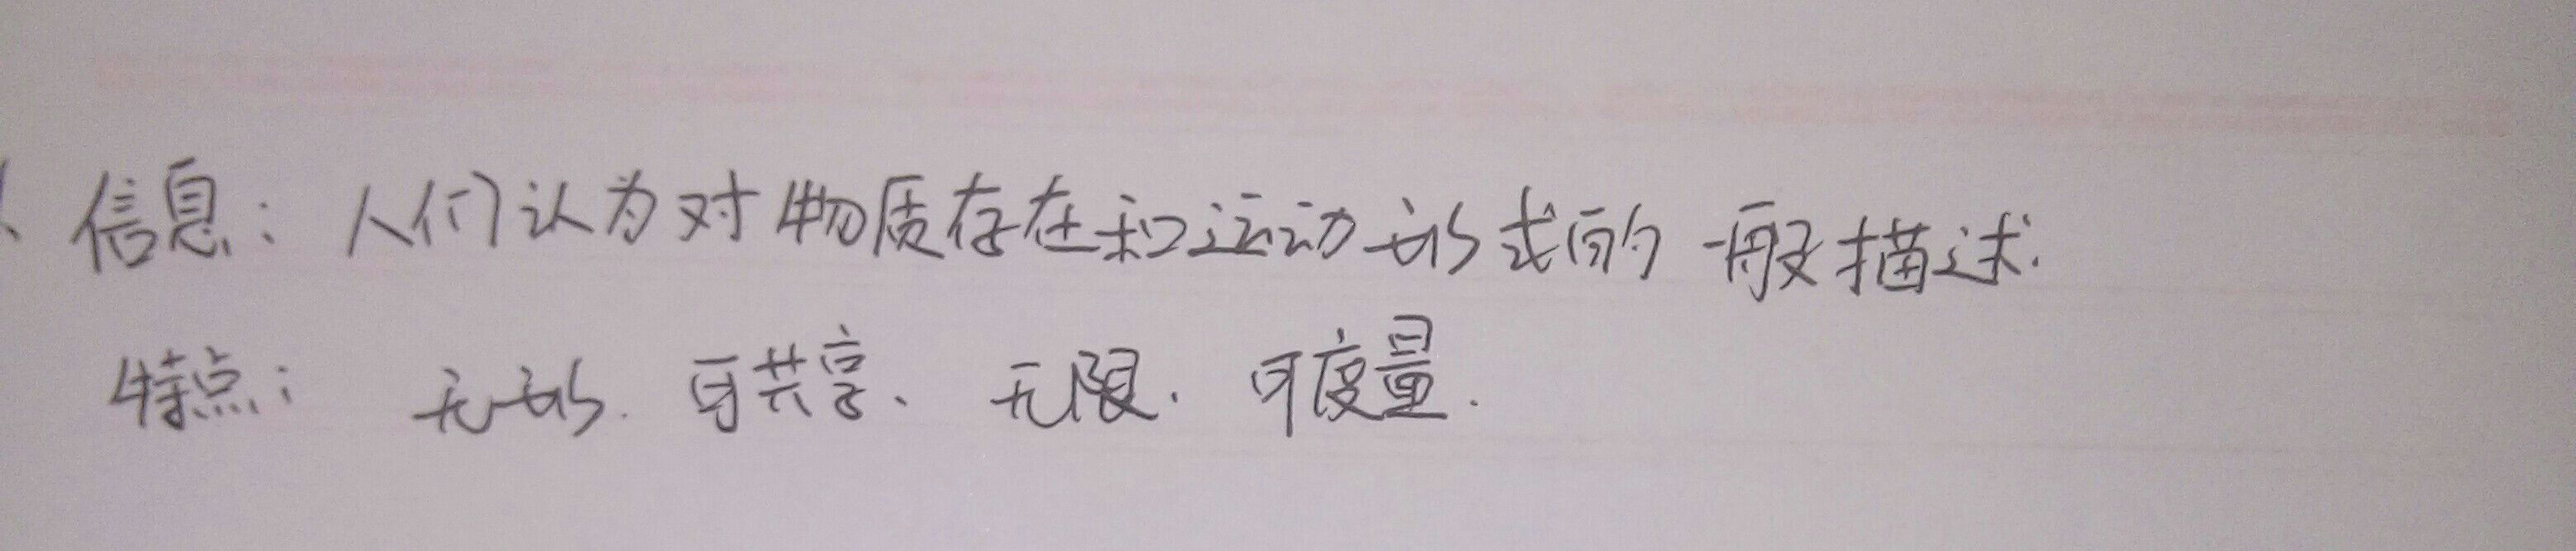 信息：人们认为对物质存在和运动形式的一般描述.
特点：无形.可共享、无限.可度量.